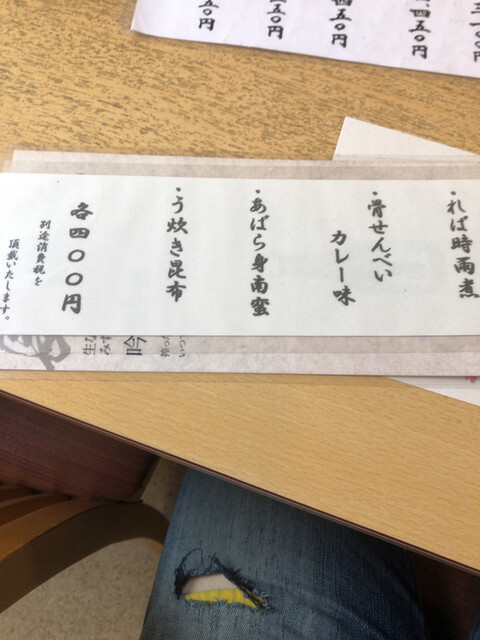 三一〇円
四五〇円
五〇円
五〇円
・れば時雨煮
・骨せんべい
カレー味
・あばら身南蛮
・う炊き昆布
各四〇〇円
別途消費税を
頂戴いたします。
吟
みず
生ひ